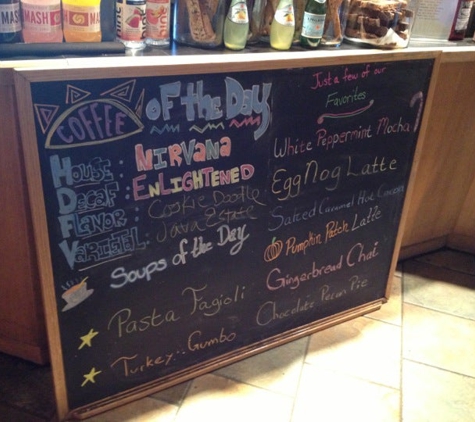 MASH
MASH
COFFEE OF THE DAY
HOUSE: NIRVANA
DECAF: ENLIGHTENED
FLAVOR: Cookie Doodle
VARIETAL: Java Estate
Soups of the Day
Pasta Fagioli
Turkey Gumbo
Just a few of our
Favorites
White Peppermint Mocha
EggNog Latte
Salted Caramel Hot Cocoa
Pumpkin Patch Latte
Gingerbread Chai
Chocolate Pecan Pie